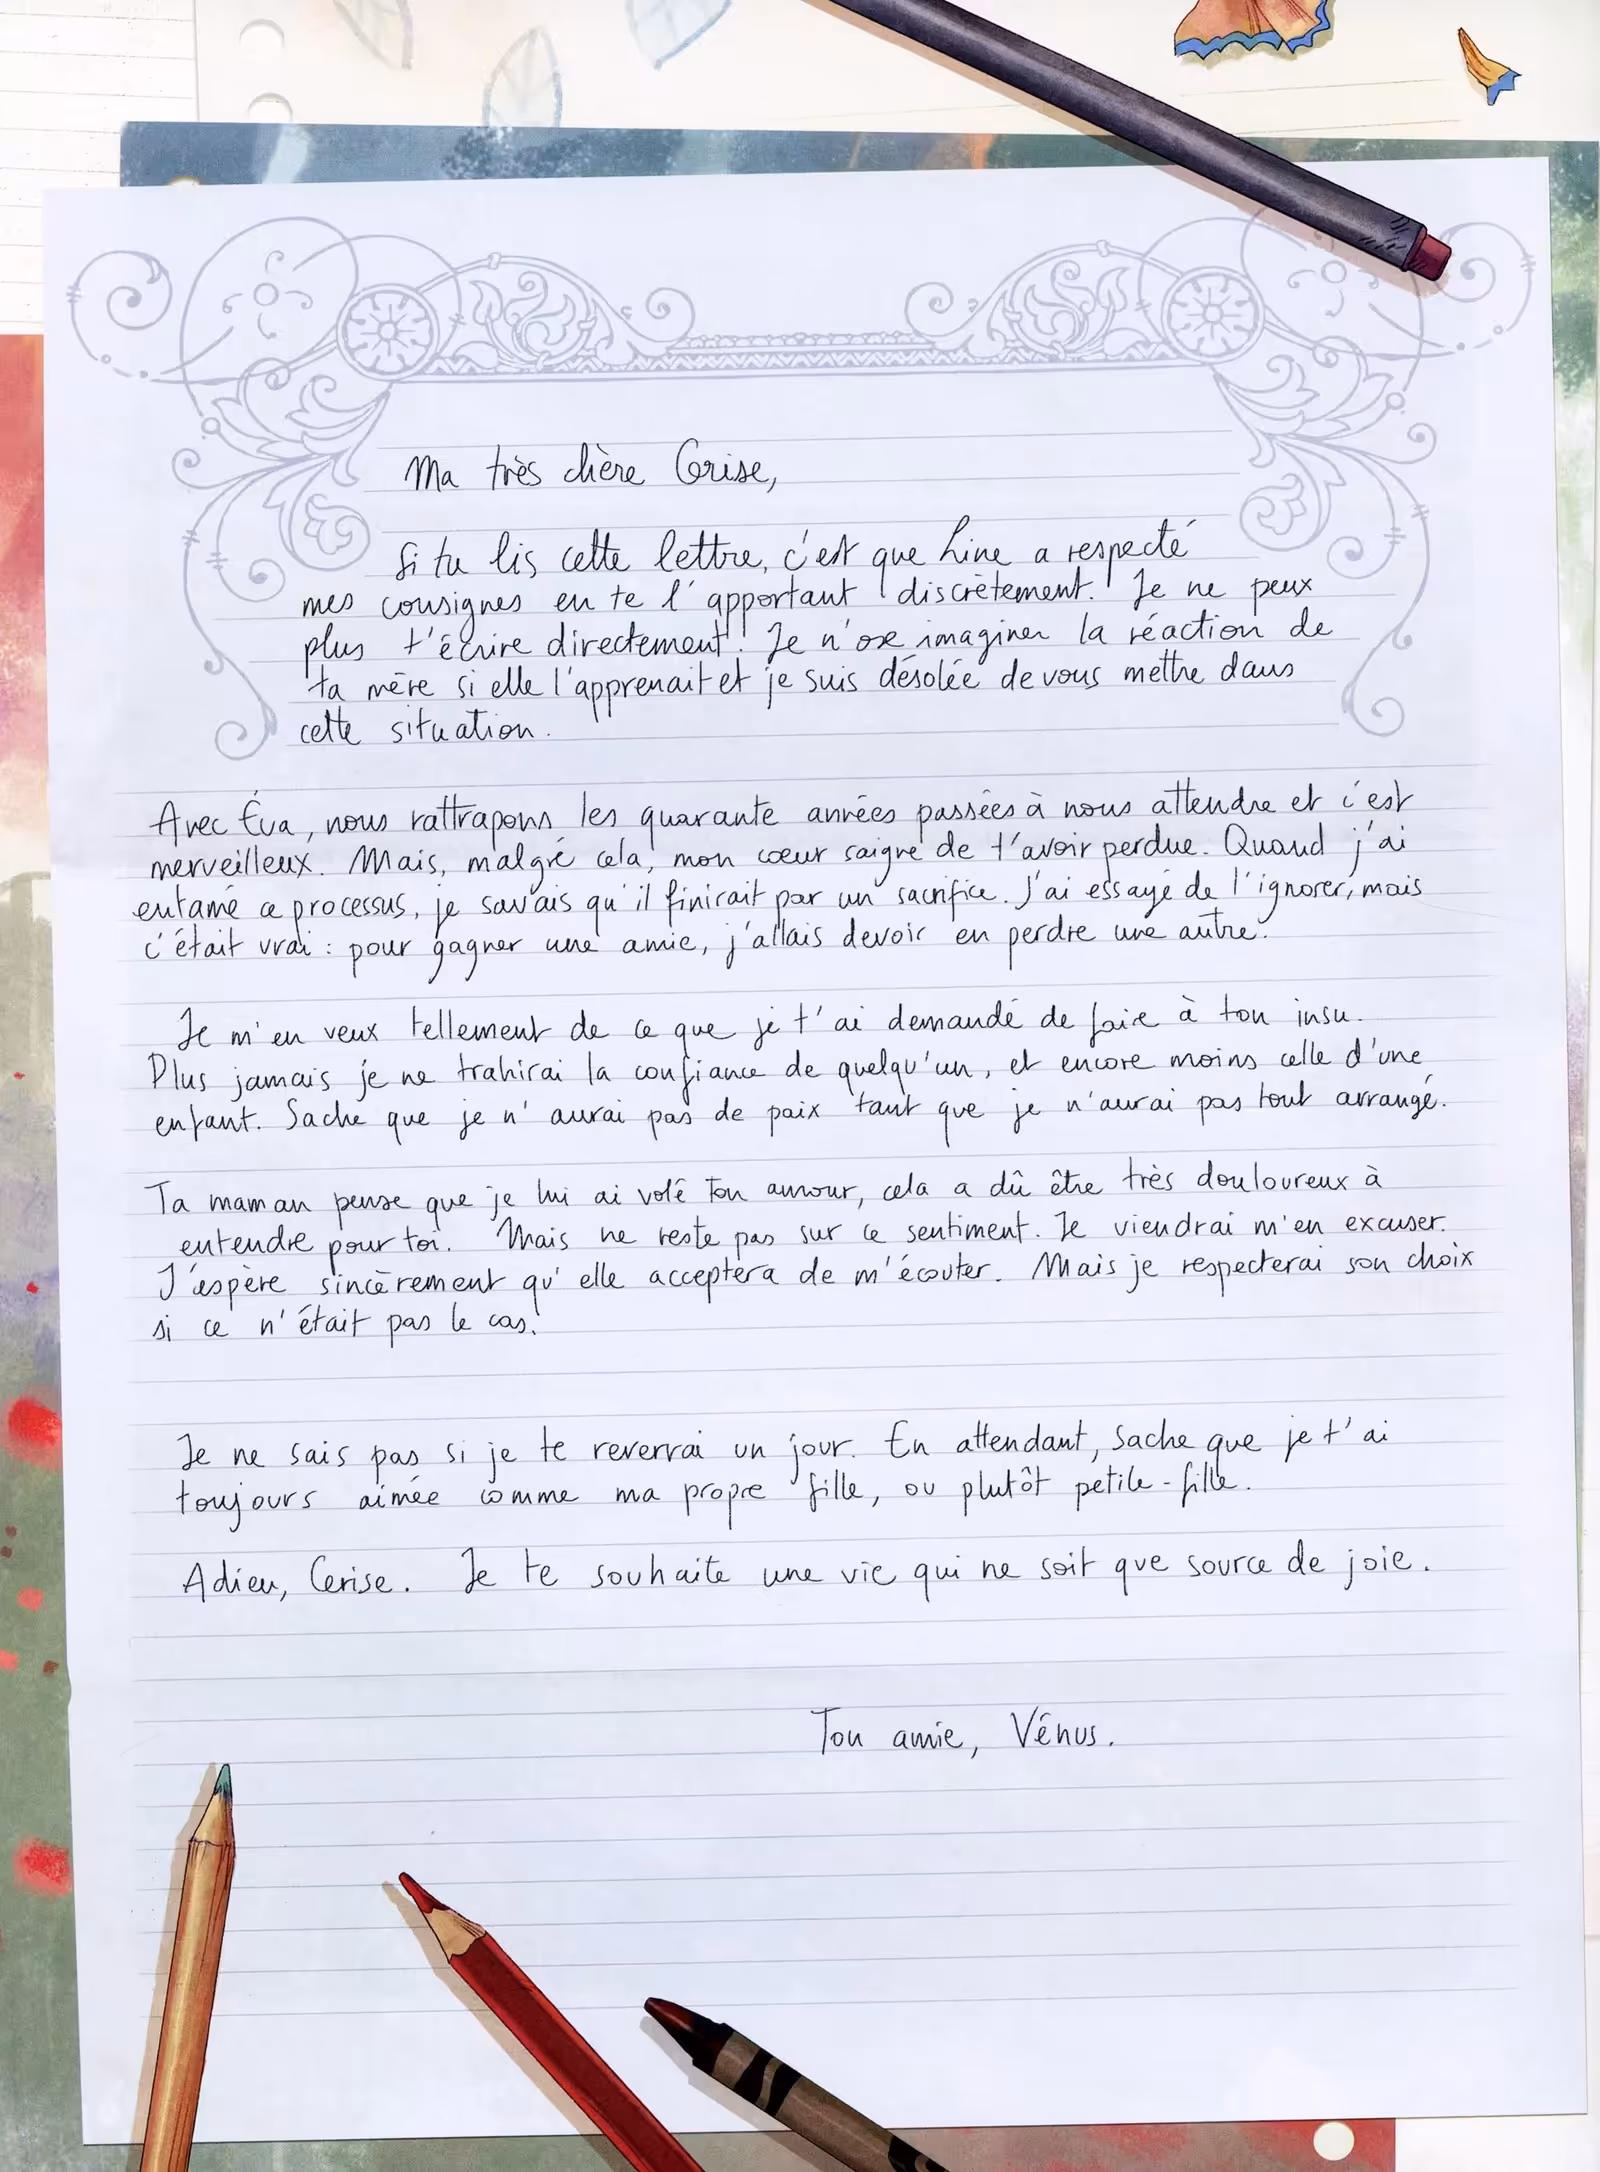 Ma très chère Cerise,
Si tu lis cette lettre, c'est que Line a respecté
mes consignes en te l'apportant discrètement. Je ne peux
plus t'écrire directement. Je n'ose imaginer la réaction de
ta mère si elle l'apprenait et je suis désolée de vous mettre dans
cette situation.
Avec Éva, nous rattrapons les quarante années passées à nous attendre et c'est
merveilleux. Mais, malgré cela, mon cœur saigne de t'avoir perdue. Quand j'ai
entamé ce processus, je savais qu'il finirait par un sacrifice. J'ai essayé de l'ignorer, mais
c'était vrai : pour gagner une amie, j'allais devoir en perdre une autre.
Je m'en veux tellement de ce que je t'ai demandé de faire à ton insu.
Plus jamais je ne trahirai la confiance de quelqu'un, et encore moins celle d'une
enfant. Sache que je n'aurai pas de paix tant que je n'aurai pas tout arrangé.
Ta maman pense que je lui ai volé ton amour, cela a dû être très douloureux à
entendre pour toi. Mais ne reste pas sur ce sentiment. Je viendrai m'en excuser.
J'espère sincèrement qu'elle acceptera de m'écouter. Mais je respecterai son choix
si ce n'était pas le cas.
Je ne sais pas si je te reverrai un jour. En attendant, sache que je t'ai
toujours aimée comme ma propre fille, ou plutôt petite-fille.
Adieu, Cerise. Je te souhaite une vie qui ne soit que source de joie.
Ton amie, Vénus.